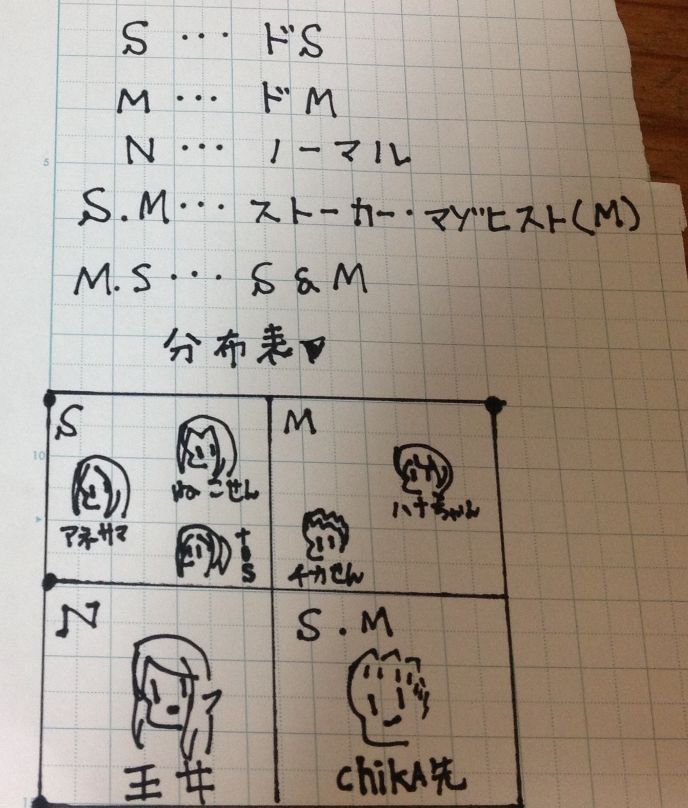 S ... ドS
M ... ドM
N ... ノーマル
S.M ... ストーカー・マゾヒスト(M)
M.S ... S&M
分布表▼
S
ねこせん
アネサマ
M
ハナちゃん
チカせん
N
S.M
chikA先
5
10